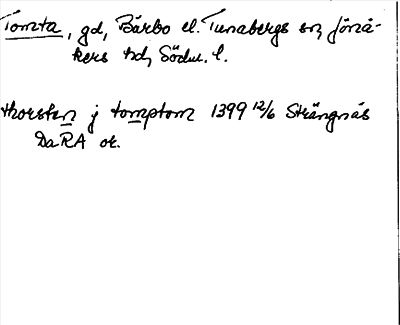 Tomta, gd, Bärbo el. Tunabergs sn, Jönå-
kers hd, Södm. l.
thorsten j tomptom 1399 12/6 Strängnäs
DaRA or.